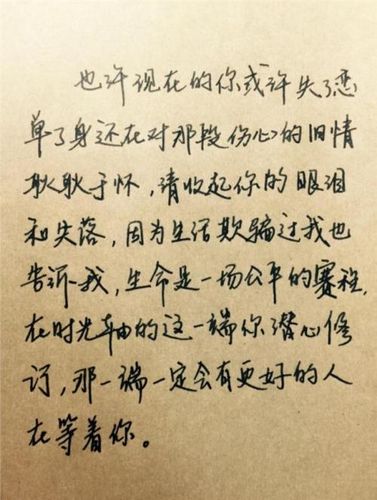 也许现在的你或许失了恋
单了身还在对那段伤心的旧情
耿耿于怀，请收起你的眼泪
和失落，因为生活欺骗过我也
告诉我，生命是一场公平的赛程，
在时光轴的这一端你潜心修
订，那一端一定会有更好的人
在等着你。